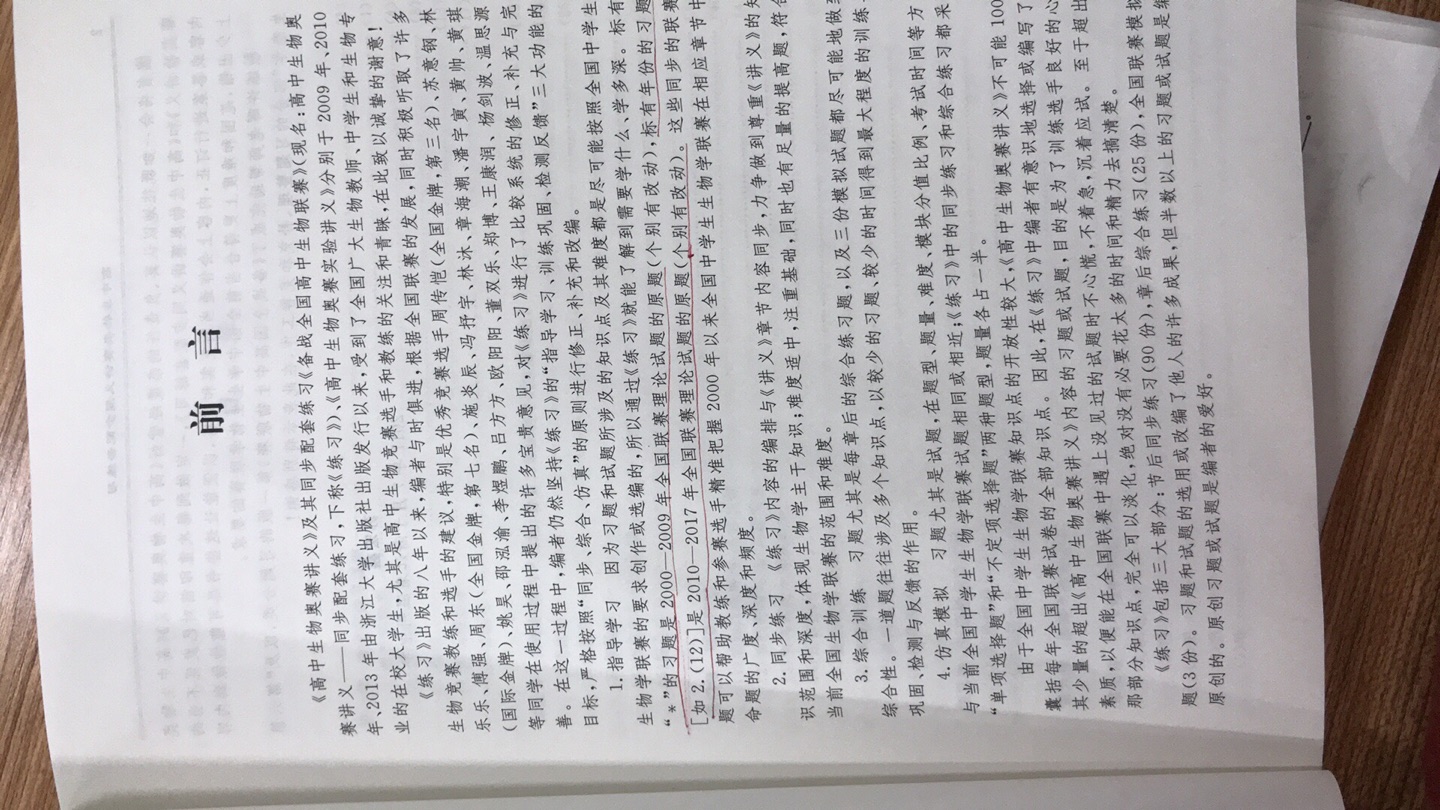 前　言
《高中生物奥赛讲义》及其同步配套练习《备战全国高中生物联赛》(现名:高中生物奥
赛讲义——同步配套练习,下称《练习》)、《高中生物奥赛实验讲义》分别于 2009 年、2010
年、2013 年由浙江大学出版社出版发行以来,受到了全国广大生物教师、中学生和生物专
业的在校大学生,尤其是高中生物竞赛选手和教练的关注和青睐,在此致以诚挚的谢意!
《练习》出版的八年以来,编者与时俱进,根据全国联赛的发展,同时积极听取了许多
生物竞赛教练和选手的建议,特别是优秀竞赛选手周传恺(全国金牌,第三名)、苏意钢、林
乐乐、傅强、周东(全国金牌,第七名)、施炎辰、冯抒宇、林沐、章海潮、潘宇寅、黄帅、黄琪
(国际金牌)、姚昊、邵泓渝、李煜鹏、吕方方、欧阳阳、董双乐、郑博、王康润、杨剑波、温思源
等同学在使用过程中提出的许多宝贵意见,对《练习》进行了比较系统的修正、补充与完
善。在这一过程中,编者仍然坚持《练习》的“指导学习、训练巩固、检测反馈”三大功能的
目标,严格按照“同步、综合、仿真”的原则进行修正、补充和改编。
1. 指导学习　因为习题和试题所涉及的知识点及其难度都是尽可能按照全国中学生
生物学联赛的要求创作或选编的,所以通过《练习》就能了解到需要学什么、学多深。标有
“*”的习题是 2000—2009 年全国联赛理论试题的原题(个别有改动),标有年份的习题
[如 2.(12)]是 2010—2017 年全国联赛理论试题的原题(个别有改动)。这些同步的联赛
题可以帮助教练和参赛选手精准把握 2000 年以来全国中学生生物学联赛在相应章节中
命题的广度、深度和频度。
2. 同步练习　《练习》内容的编排与《讲义》章节内容同步,力争做到尊重《讲义》的知
识范围和深度,体现生物学主干知识;难度适中,注重基础,同时也有足量的提高题,符合
当前全国生物学联赛的范围和难度。
3. 综合训练　习题尤其是每章后的综合练习题,以及三份模拟试题都尽可能地做到
综合性。一道题往往涉及多个知识点,以较少的习题、较少的时间得到最大程度的训练、
巩固、检测与反馈的作用。
4. 仿真模拟　习题尤其是试题,在题型、题量、难度、模块分值比例、考试时间等方
与当前全国中学生生物学联赛试题相同或相近;《练习》中的同步练习和综合练习都采
“单项选择题”和“不定项选择题”两种题型,题量各占一半。
由于全国中学生生物学联赛知识点的开放性较大,《高中生物奥赛讲义》不可能 100
囊括每年全国联赛试卷的全部知识点。因此,在《练习》中编者有意识地选择或编写了
其少量的超出《高中生物奥赛讲义》内容的习题或试题,目的是为了训练选手良好的心
素质,以便能在全国联赛中遇上没见过的试题时不心慌,不着急,沉着应试。至于超出
那部分知识点,完全可以淡化,绝对没有必要花太多的时间和精力去搞清楚。
《练习》包括三大部分:节后同步练习(90 份),章后综合练习(25 份),全国联赛模拟
题(3 份)。习题和试题的选用或改编了他人的许多成果,但半数以上的习题或试题是编
原创的。原创习题或试题是编者的爱好。